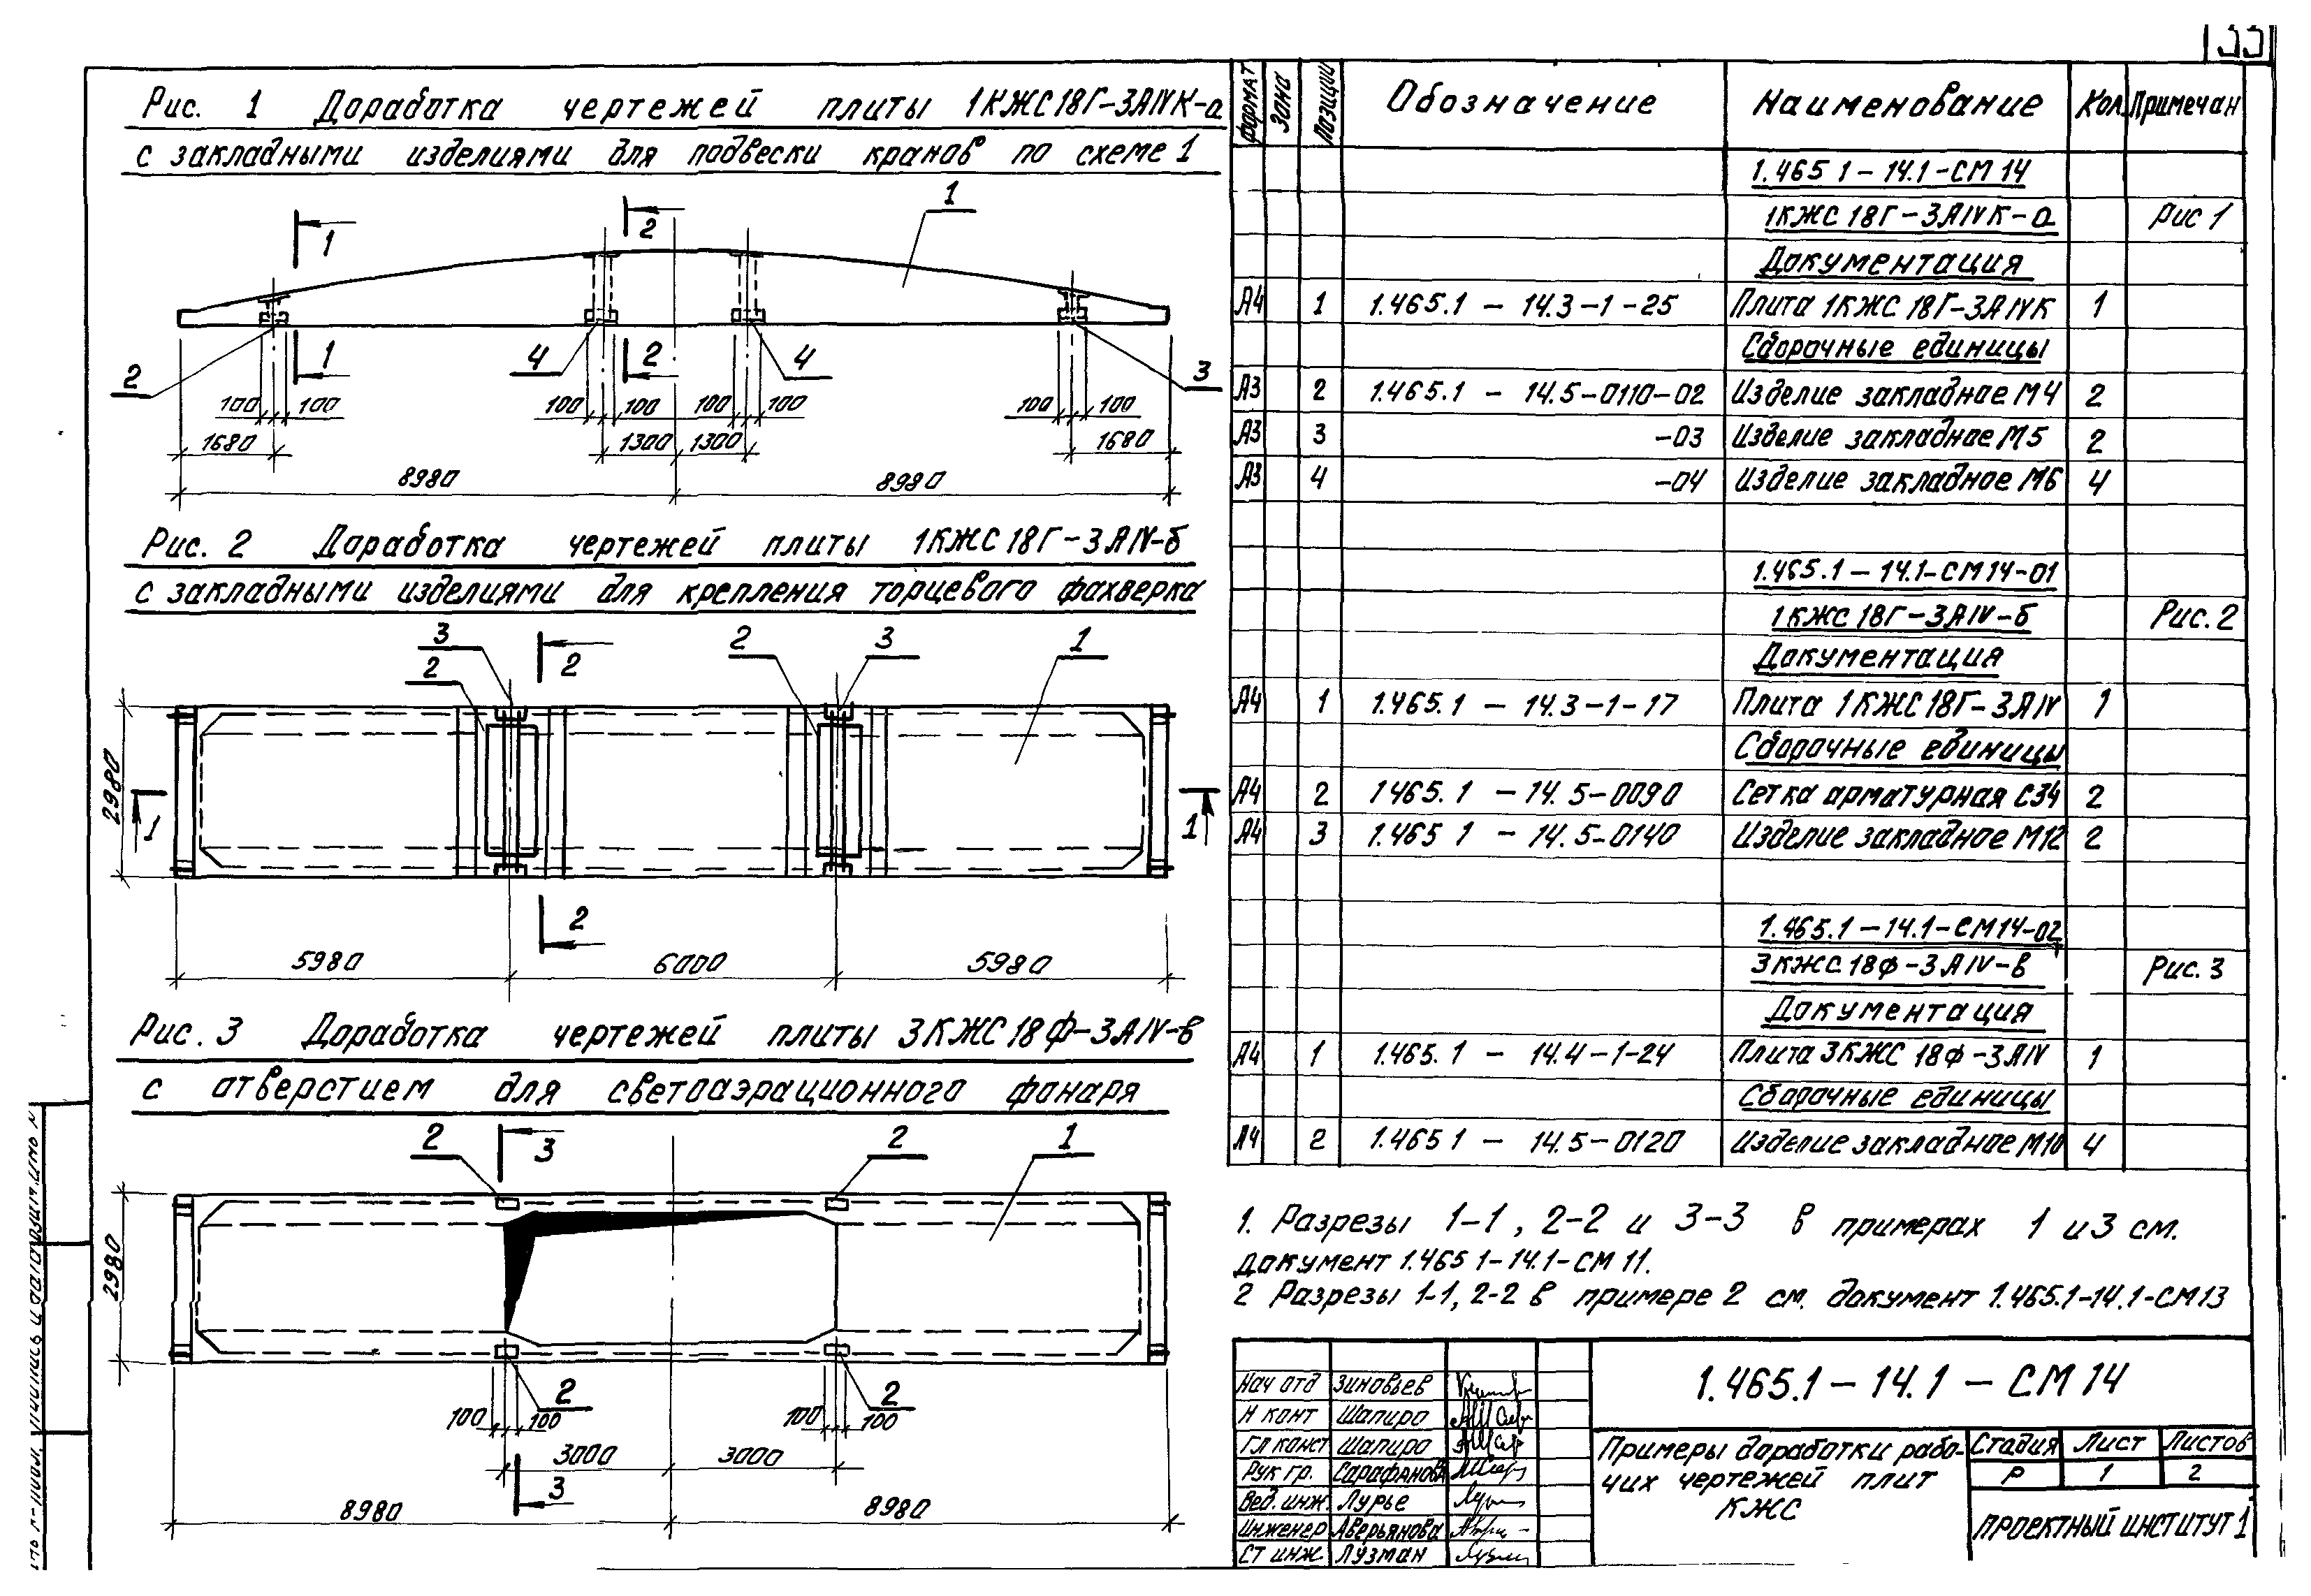 33
Рис. 1 Доработка чертежей плиты 1КЖС18Г-3АIVК-а
с закладными изделиями для подвески кранов по схеме 1
1
2
1
2
4
2
4
3
1
1
2
100 100
100 100 100 100
100 100
1680
1300 1300
1680
8980
8980
Рис. 2 Доработка чертежей плиты 1КЖС18Г-3АIV-б
с закладными изделиями для крепления торцевого фахверка
3
2
2
2
3
1
2980
1
1
2
5980
6000
5980
Рис. 3 Доработка чертежей плиты 3КЖС18Ф-3АIV-в
с отверстием для светоаэрационного фонаря
2
3
2
1
2980
2
2
100 100
100 100
3000
3000
3
8980
8980
Формат Зона Позиция Обозначение Наименование Кол. Примечан
1.465 1 - 14.1 - СМ 14
1КЖС 18Г - 3АIVК - а Рис 1
Документация
А4 1 1.465.1 - 14.3-1-25 Плита 1КЖС 18Г-3АIVК 1
Сборочные единицы
А3 2 1.465.1 - 14.5-0110-02 Изделие закладное М4 2
А3 3 -03 Изделие закладное М5 2
А3 4 -04 Изделие закладное М6 4
1.465.1 - 14.1-СМ14-01
1КЖС 18Г - 3АIV-б Рис. 2
Документация
А4 1 1.465.1 - 14.3-1-17 Плита 1КЖС18Г-3АIV 1
Сборочные единицы
А4 2 1465.1 - 14.5-0090 Сетка арматурная С34 2
А4 3 1.465 1 - 14.5-0140 Изделие закладное М12 2
1.465.1 - 14.1-СМ14-02
3КЖС 18Ф-3АIV-в Рис. 3
Документация
А4 1 1.465.1 - 14.4-1-24 Плита 3КЖС 18Ф-3АIV 1
Сборочные единицы
А4 2 1.465 1 - 14.5-0120 Изделие закладное М10 4
1. Разрезы 1-1, 2-2 и 3-3 в примерах 1 и 3 см.
документ 1.465 1-14.1-СМ 11.
2 Разрезы 1-1, 2-2 в примере 2 см. документ 1.465.1-14.1-СМ13
Нач отд Зиновьев
Н конт Шапиро
Гл конст Шапиро
Рук гр. Сарафанова
Вед. инж Лурье
Инженер Аверьянова
Ст инж. Лузман
1.465.1 - 14.1 - СМ 14
Примеры доработки рабо-
чих чертежей плит
КЖС
Стадия Лист Листов
Р 1 2
ПРОЕКТНЫЙ ИНСТИТУТ 1